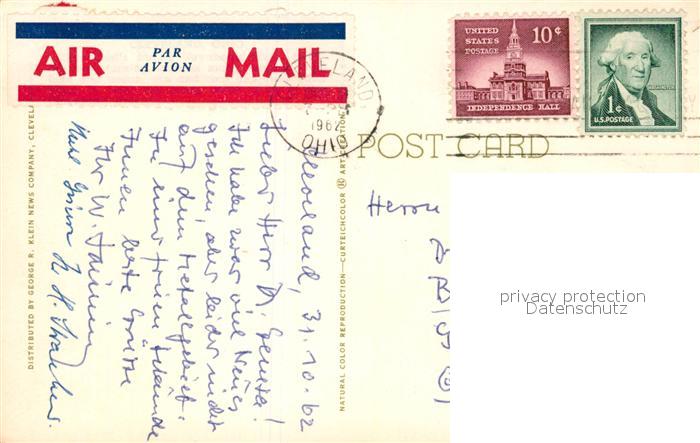 AIR PAR AVION MAIL
CLEVELAND
1962
OHIO
UNITED STATES POSTAGE 10¢
INDEPENDENCE HALL
1¢
U.S. POSTAGE
POST CARD
DISTRIBUTED BY GEORGE R. KLEIN NEWS COMPANY, CLEVELA
NATURAL COLOR REPRODUCTION—CURTEICHCOLOR ® ART-CREATION
Cleveland, 31.10.62
Lieber Herr
Ich habe zwar viel Neues
gesehen, aber leider nicht
auf dem Metallgebiet.
In einer freien
Ihnen beste Grüsse
Ihr W.
Herrn
privacy protection
Datenschutz